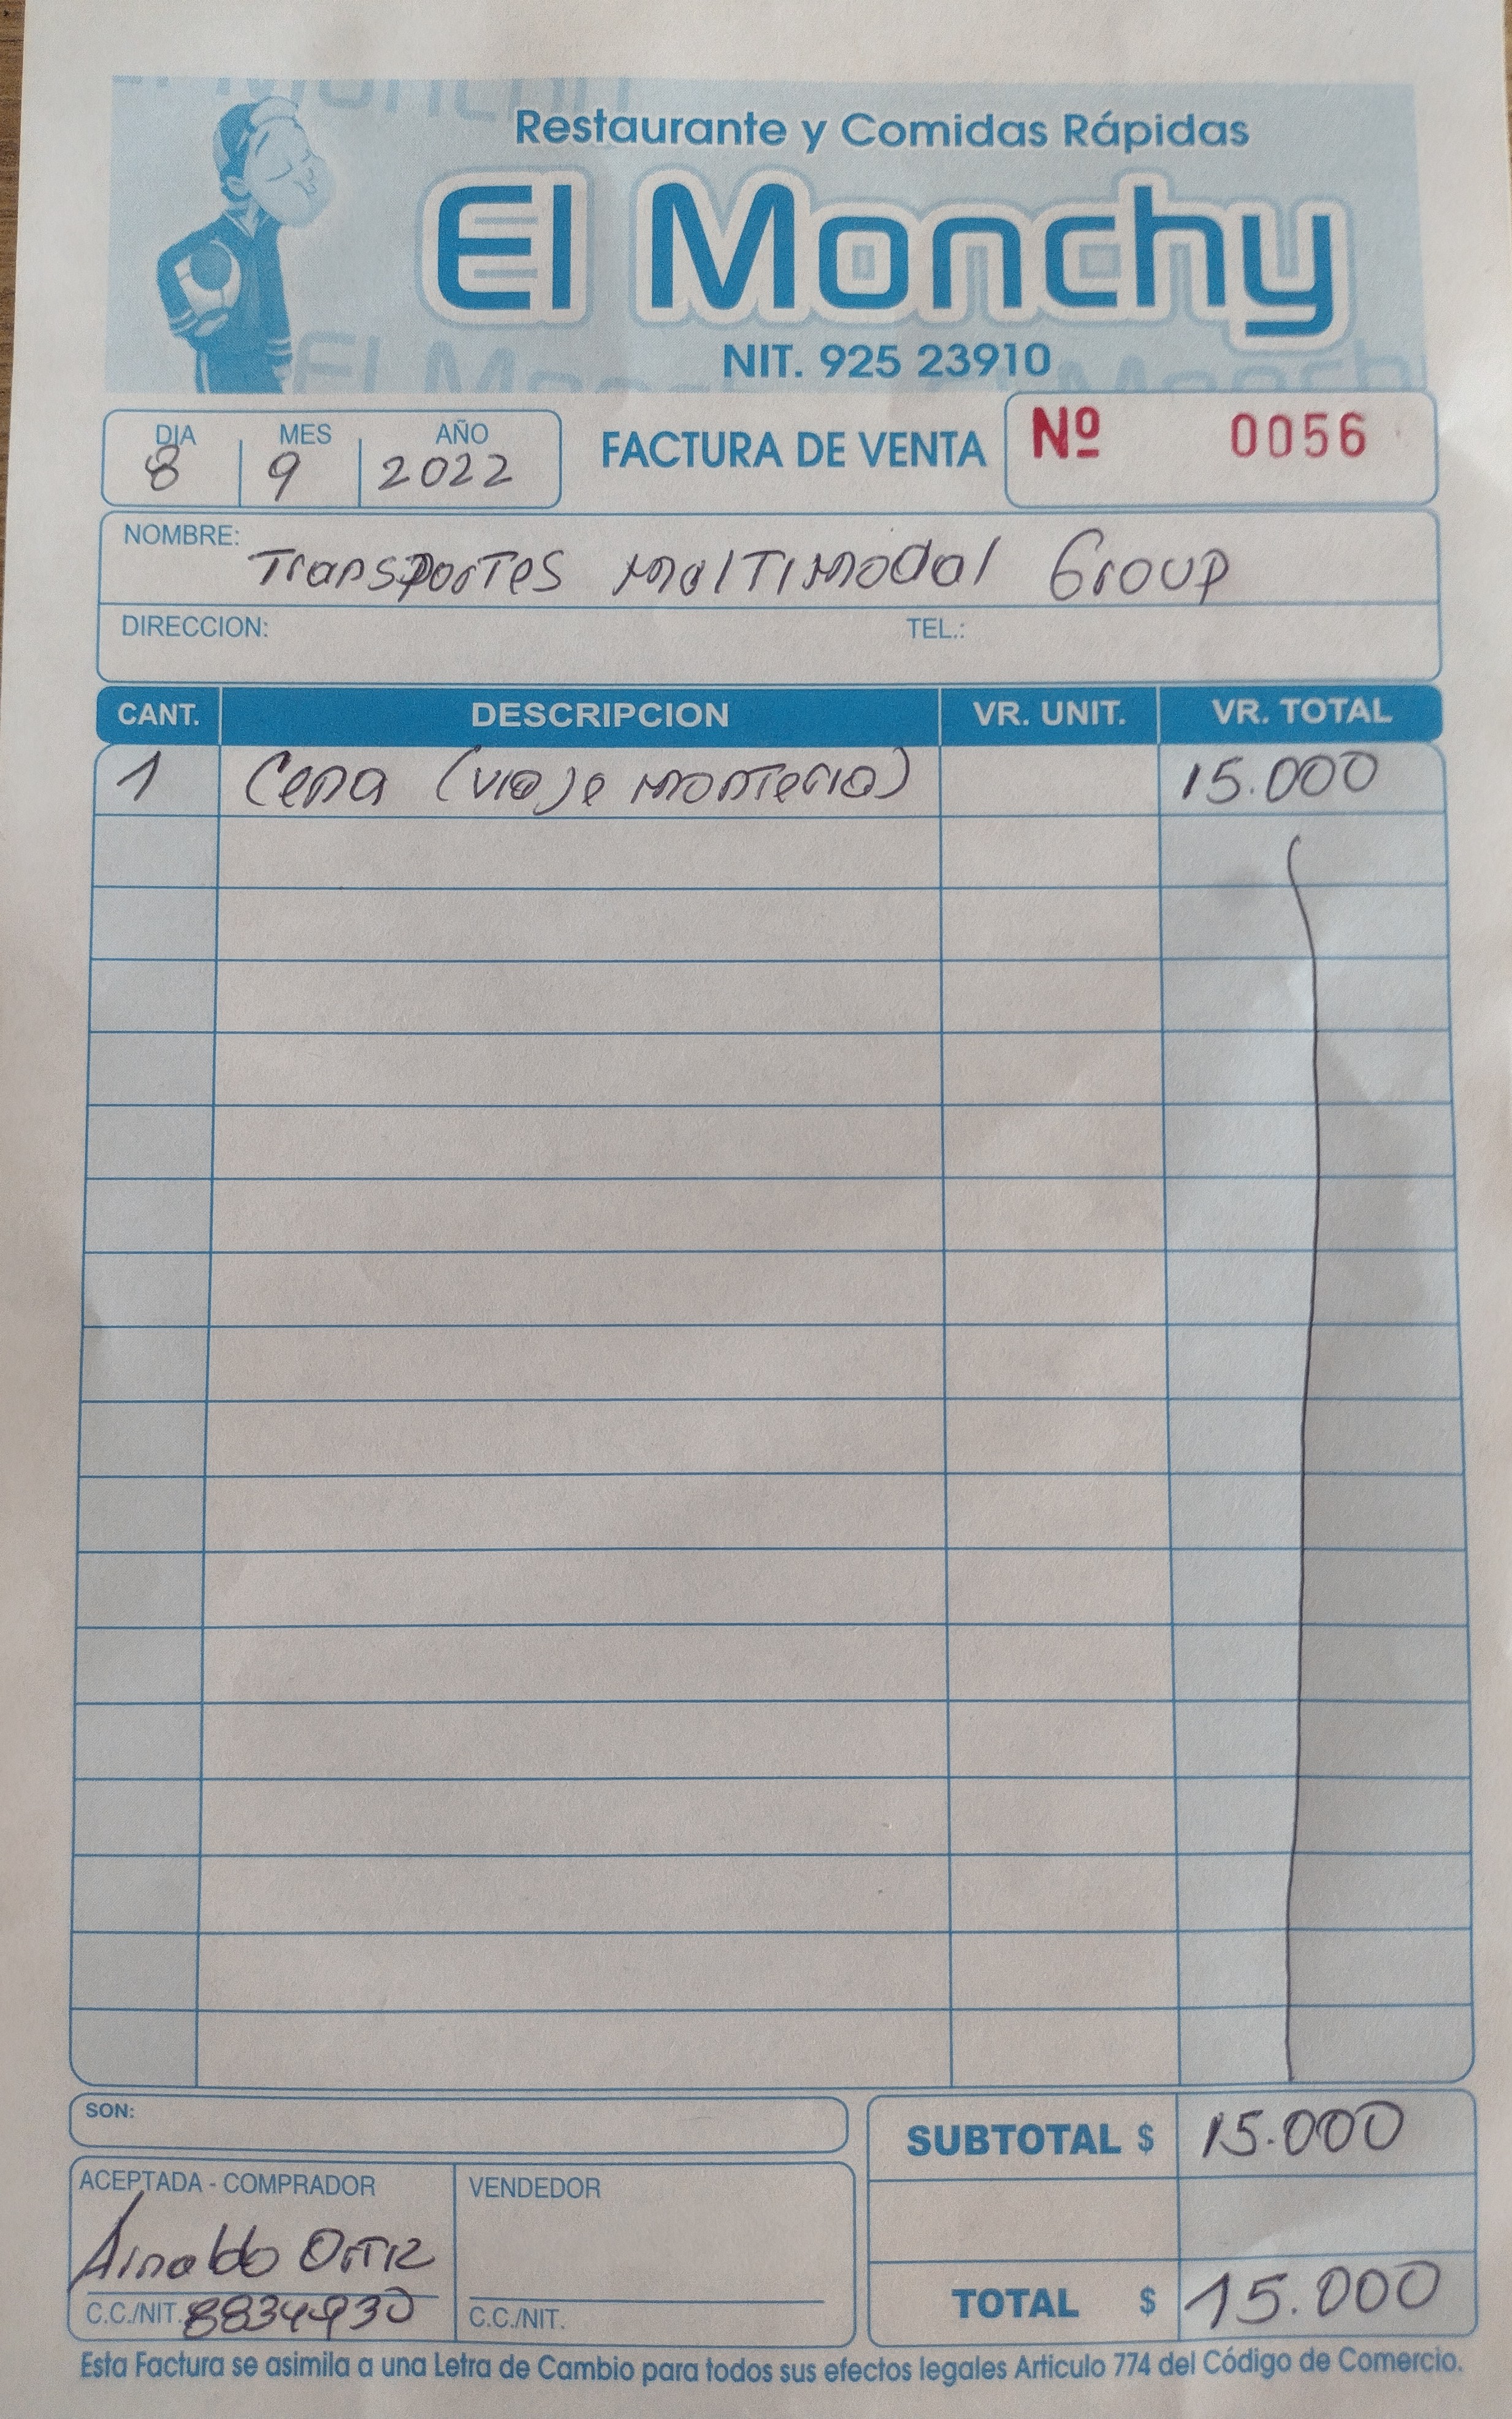 Restaurante y Comidas Rápidas
El Monchy
NIT. 925 23910
DIA MES AÑO
8 9 2022
FACTURA DE VENTA
Nº 0056
NOMBRE: Transportes Multimodal Group
DIRECCION: TEL.:
CANT. DESCRIPCION VR. UNIT. VR. TOTAL
1 Cena (viaje monteria) 15.000
SON:
SUBTOTAL $ 15.000
ACEPTADA - COMPRADOR VENDEDOR
Arnaldo Ortiz
C.C./NIT. 8834930 C.C./NIT.
TOTAL $ 15.000
Esta Factura se asimila a una Letra de Cambio para todos sus efectos legales Articulo 774 del Código de Comercio.